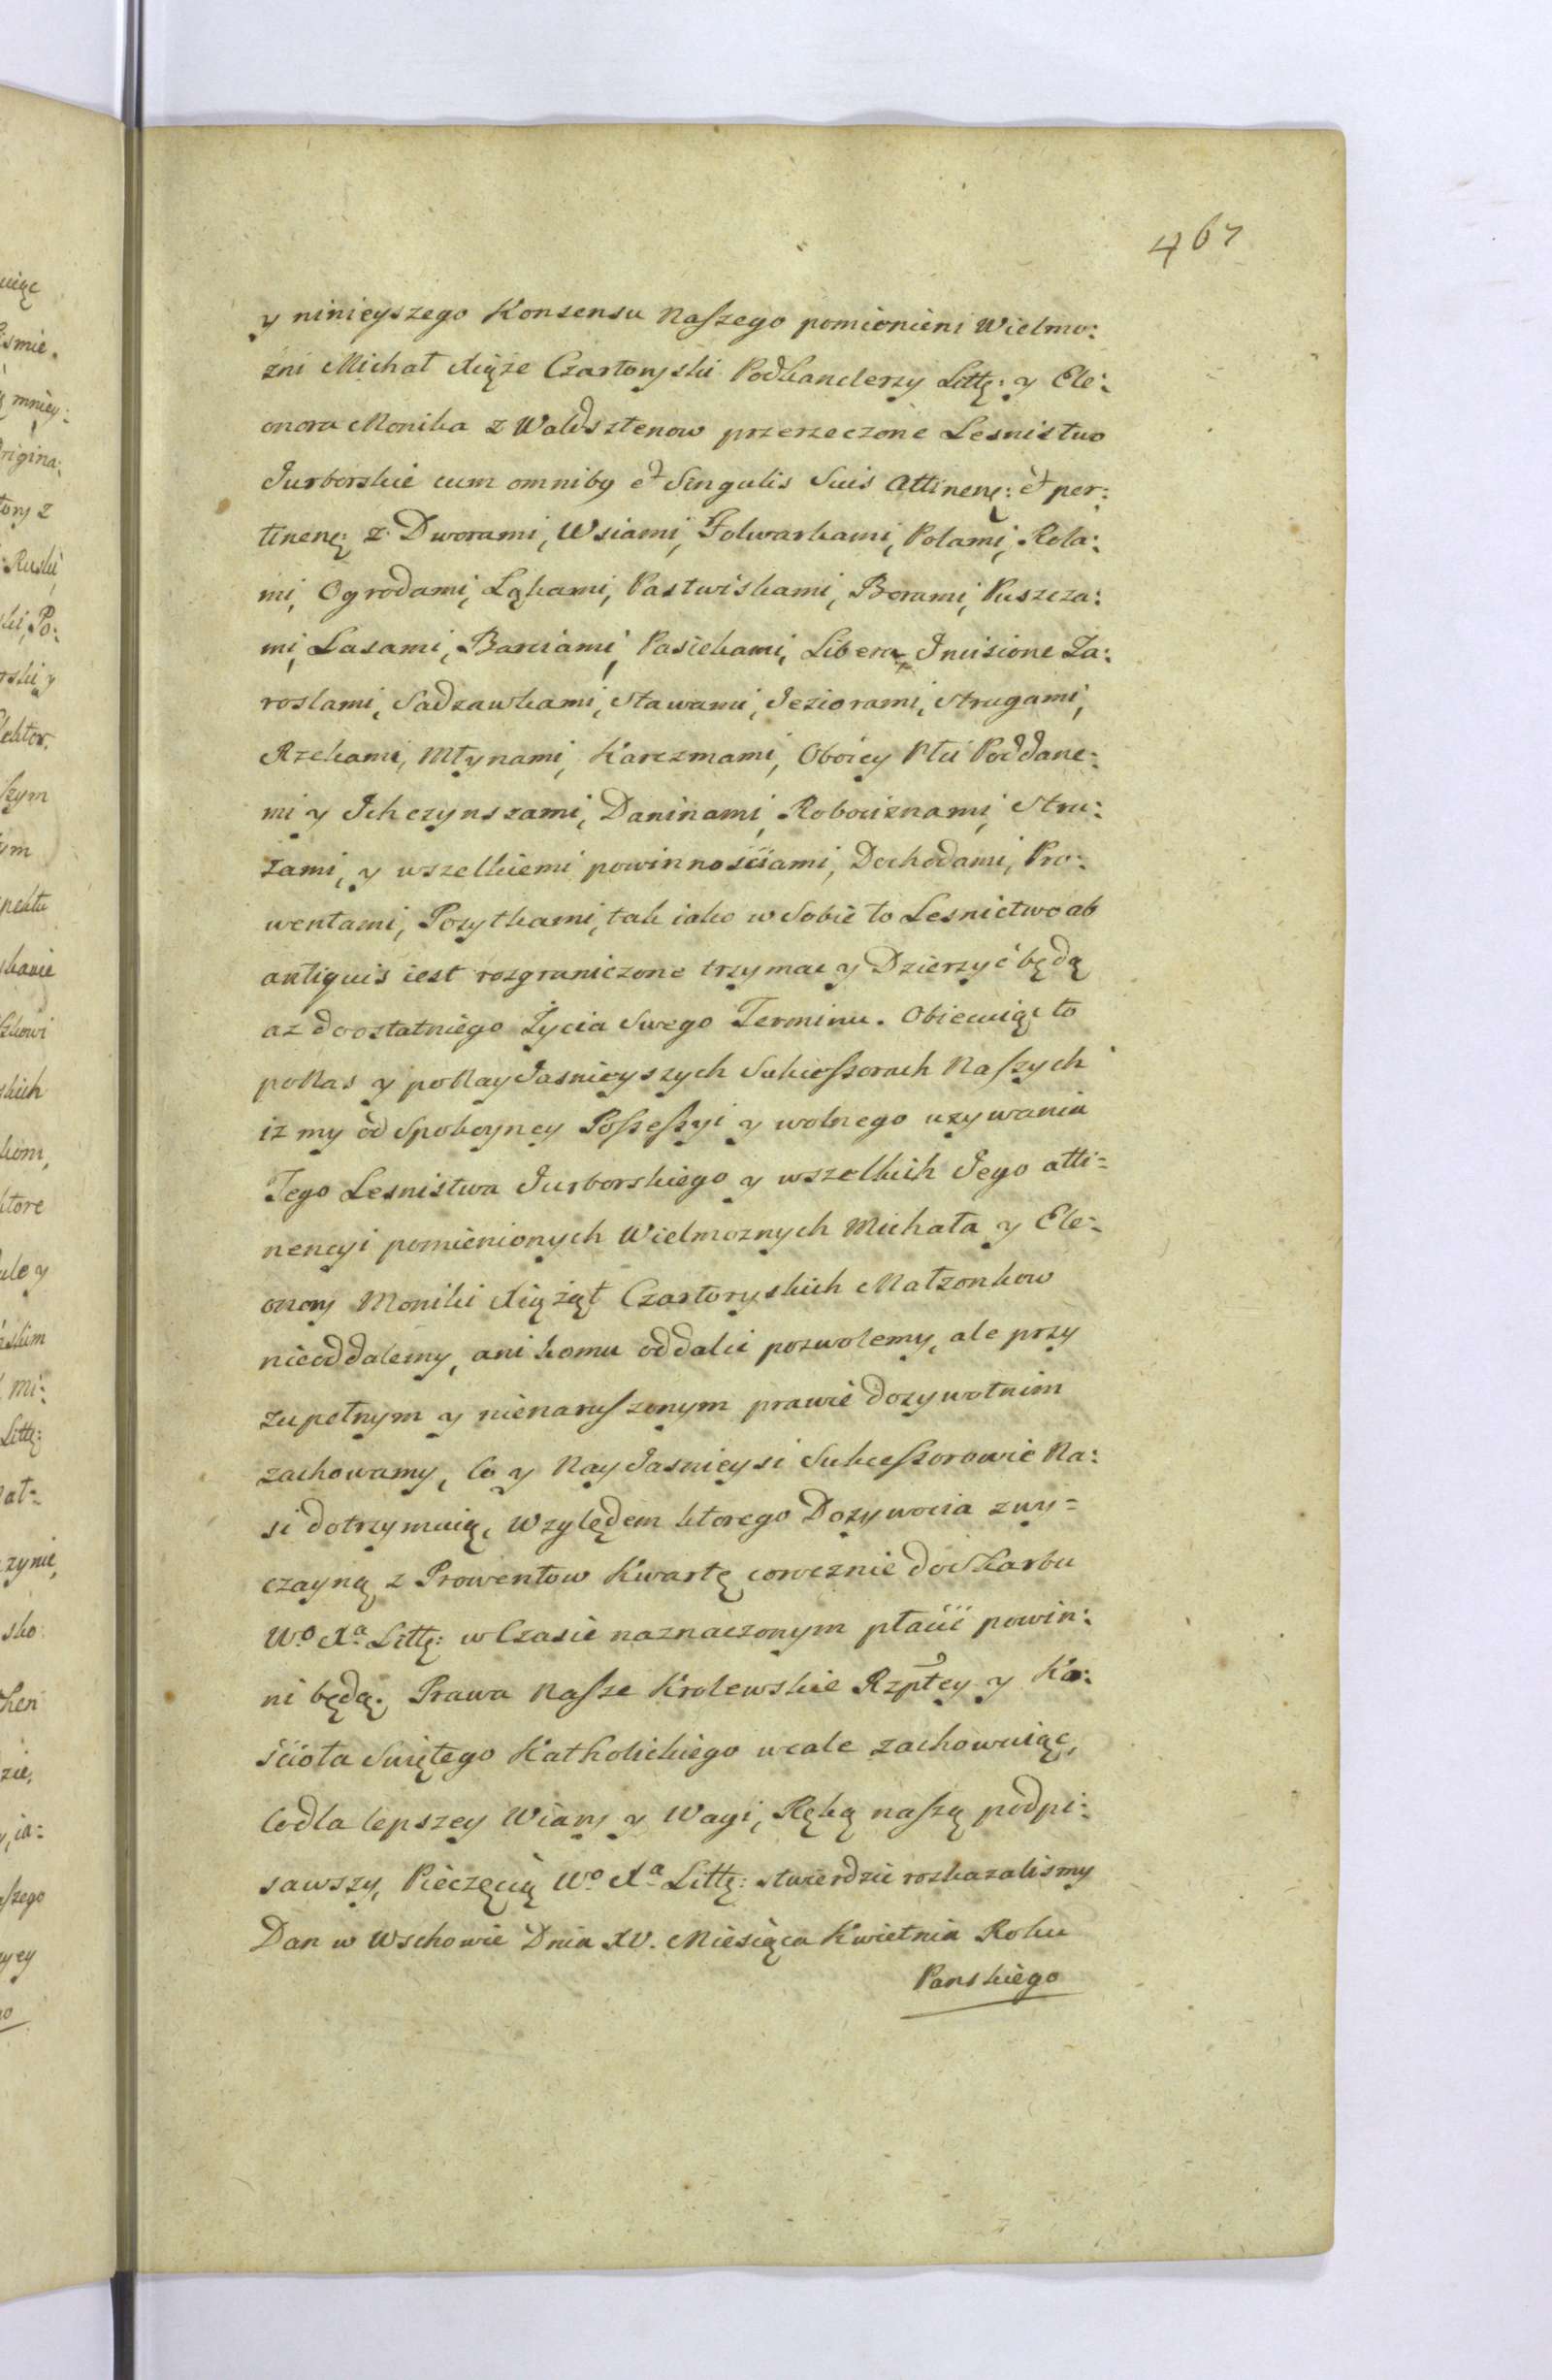 467
y ninieyszego Konsensu Naszego pomienieni Wielmo:
zni Michał Xiąże Czartoryski Podkanclerzy Litt: y Ele:
onora Monika z Waldsztenow przerzeczone Lesnistwo
Jurborskie cum omnibg et Singulis Suis Attinen: et per:
tinen: z Dworami, Wsiami, Folwarkami, Polami, Rola:
mi, Ogrodami, Łąkami, Pastwiskami, Borami, Puszcza:
mi, Lasami, Barciami, Pasiekami, Libera Incisione Za:
roslami, Sadzawkami, Stawami, Jeziorami, Strugami,
Rzekami, Młynami, Karczmami, Oboiey Płci Poddane:
mi y Ich czynszami, Daninami, Robociznami, Stru:
zami, y wszelkiemi powinnościami, Dochodami, Pro:
wentami, Pozytkami, tak iako w Sobie to Lesnictwo ab
antiquis iest rozgraniczone trzymac y Dzierzyć będą
az do ostatniego Życia Swego Terminu. Obiecuiąc to
po Nas y po Nay Jasnieyszych Sukcessorach Naszych
iz my od Spokoyney Possessyi y wolnego uzywania
Tego Lesnistwa Jurborskiego y wszelkich Jego atti=
nencyi pomienionych Wielmoznych Michała y Ele:
onory Moniki Xiążąt Czartoryskich Małzonkow
nieoddalemy, ani komu oddalic pozwolemy, ale przy
zupełnym y nienaruszonym prawie dozywotnim
zachowamy, Co y Nay Jasnieysi Sukcessorowie Na:
si dotrzymaią, Względem ktorego Dozywocia zwy=
czayną z Prowentow Kwartę corocznie do Skarbu
Wo Xa Litt: w Czasie naznaczonym płacić powin:
ni będą. Prawa Nasze Krolewskie Rzpłtey y Ko:
ścioła Swiętego Katholickiego wcale zachowuiąc,
Co dla lepszey Wiary y Wagi, Ręką naszą podpi:
sawszy, Pieczęcią Wo Xa Litt: stwierdzic rozkazalismy
Dan w Wschowie Dnia XV. Miesiąca Kwietnia Roku
Panskiego